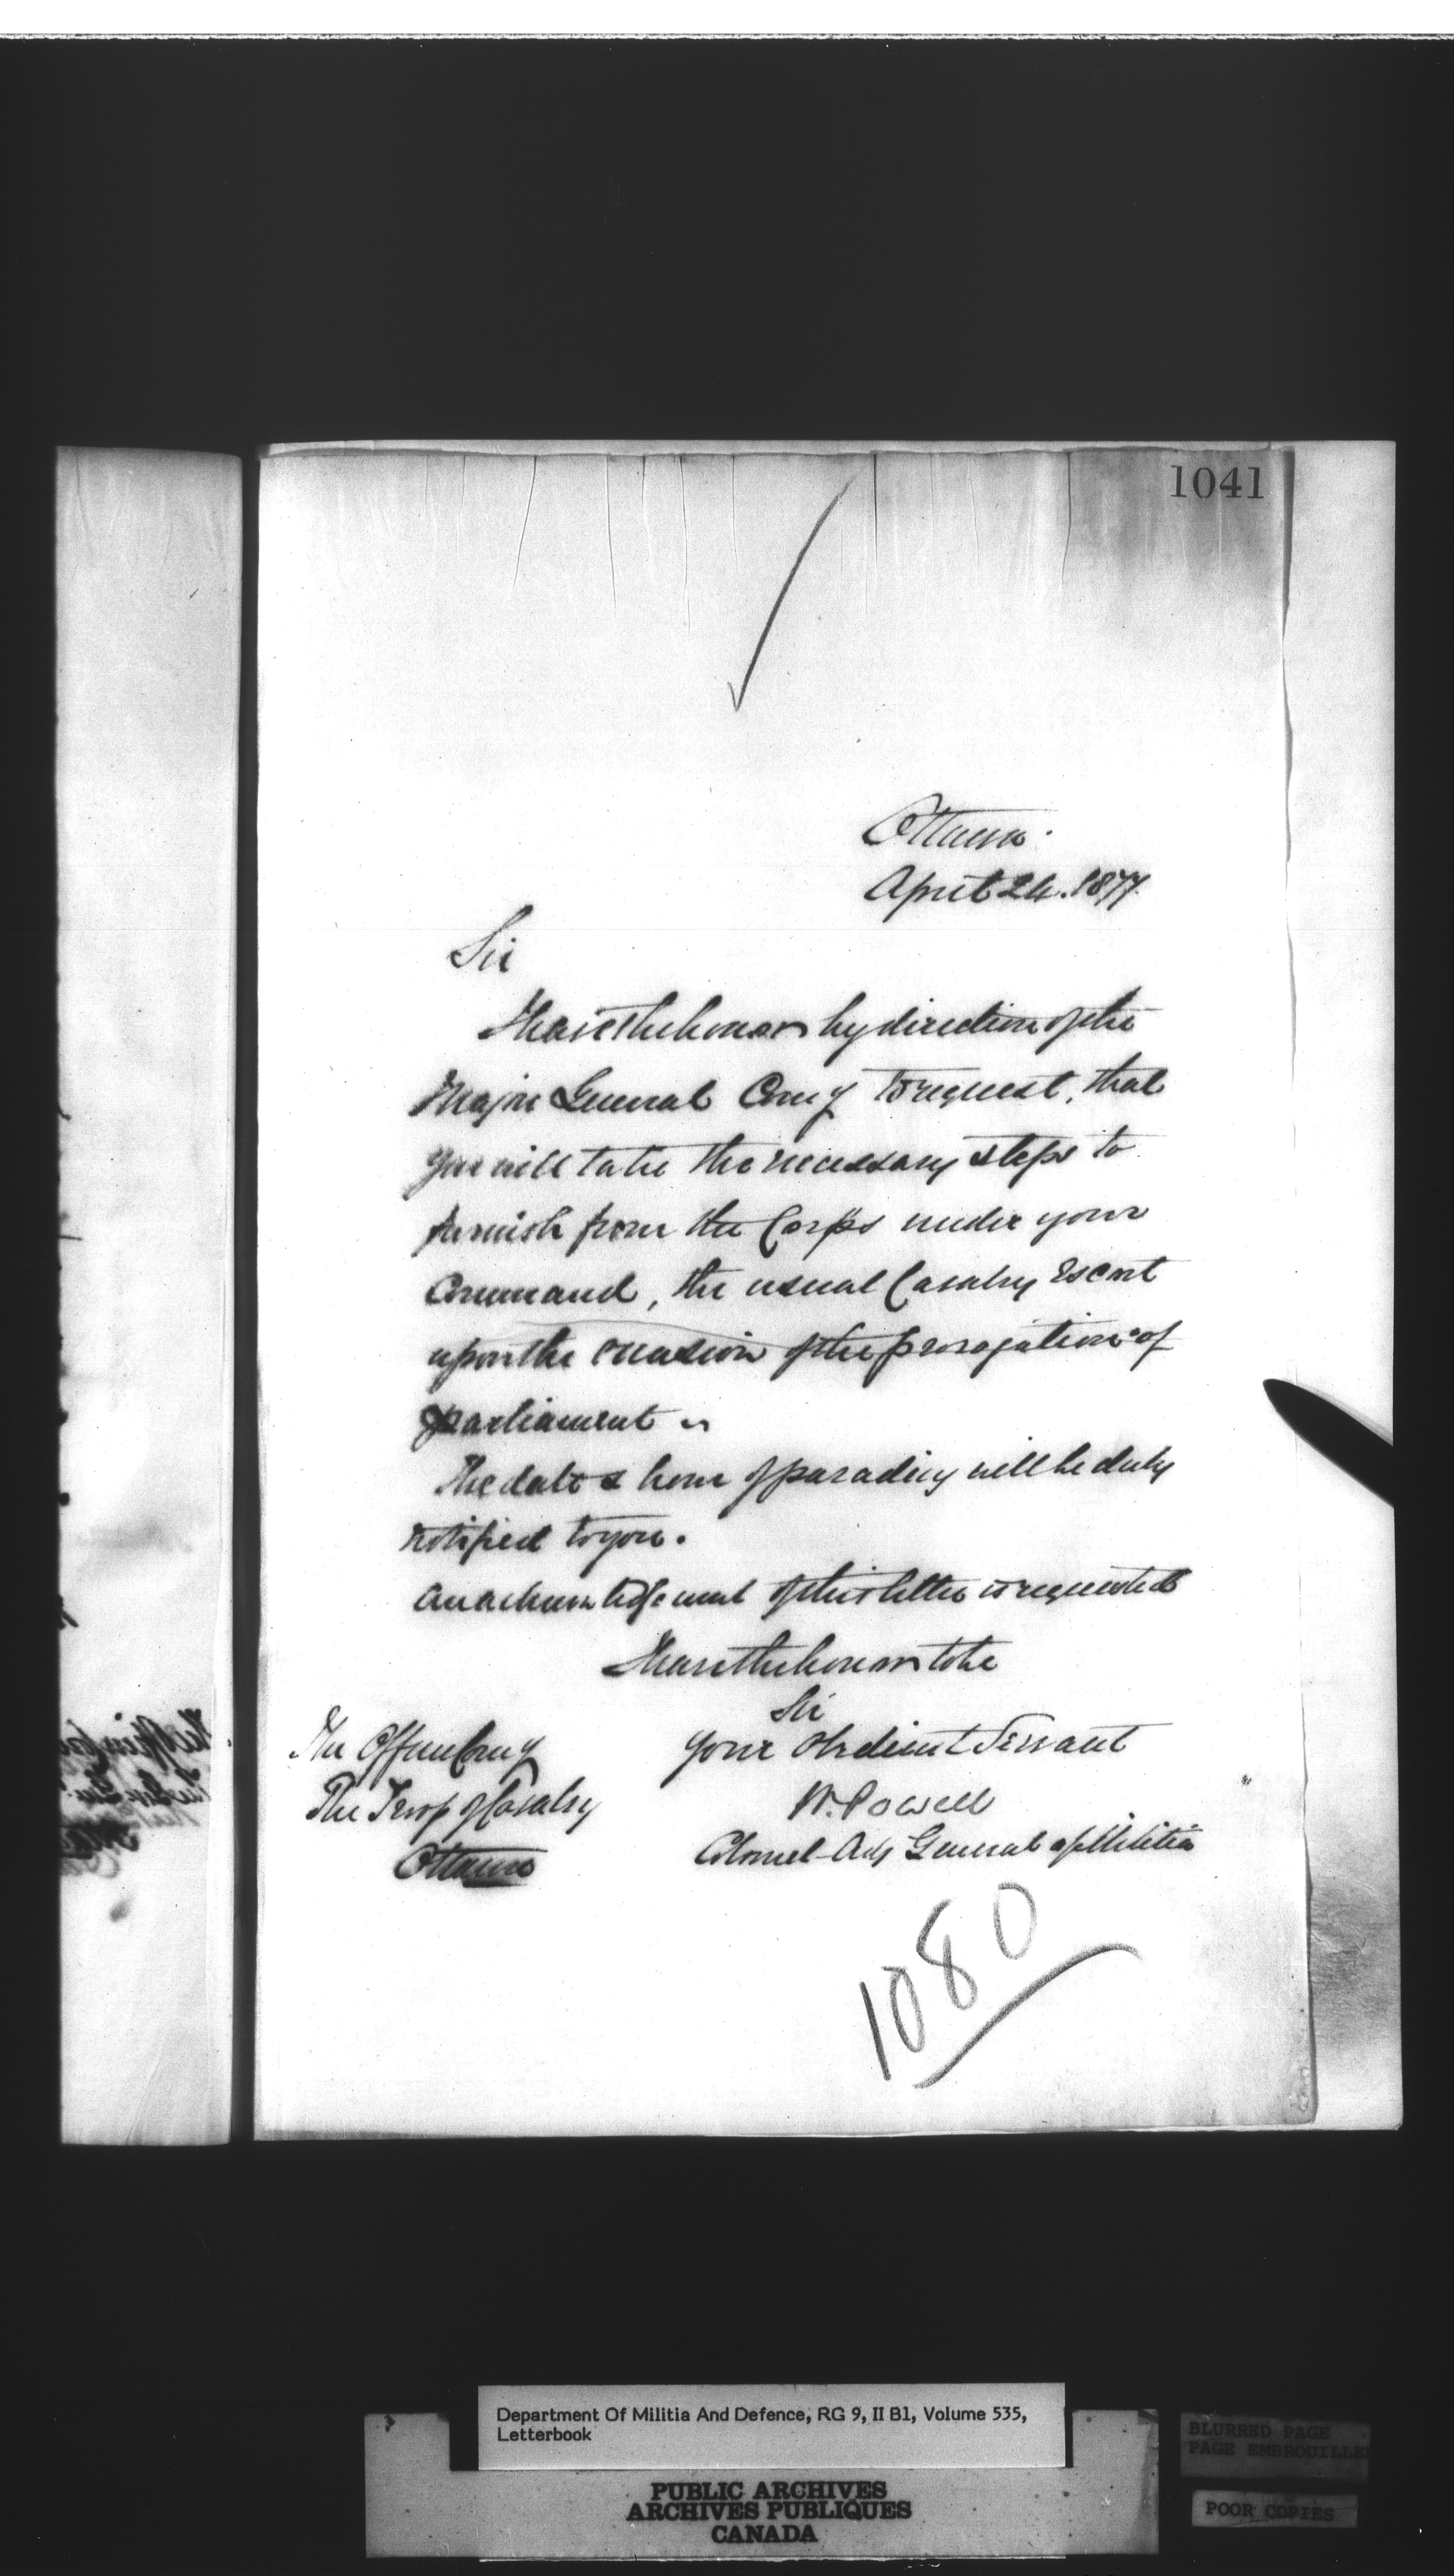 1041
Ottawa.
April 24. 1877.
Sir
I have the honor by direction of the
Major General Comg to request, that
you will take the necessary steps to
furnish from the Corps under your
Command, the usual Cavalry Escort
upon the occasion of the prorogation of
parliament
The date & hour of parading will be duly
notified to you.
An acknowledgement of this letter is requested
I have the honor to be
Sir
Your Obedient Servant
W. Powell
Colonel Adj General of Militia
The Officer Comg
The Troop of Cavalry
Ottawa
1080
Department Of Militia And Defence, RG 9, II B1, Volume 535,
Letterbook
PUBLIC ARCHIVES
ARCHIVES PUBLIQUES
CANADA
BLURRED PAGE
PAGE EMBROUILLE
POOR COPIES